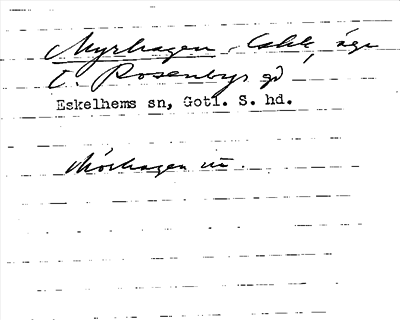 Myrhagen, Cahk, äga
O. Rosenbys gd
Eskelhems sn, Gotl. S. hd.
Mörhagen m.